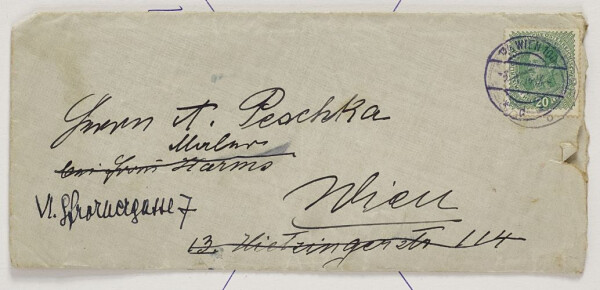 WIEN
20
Herrn A. Peschka
Maler
bei Frau Harms
VI.
gasse 7
Wien
13. Hietzingerstr 114